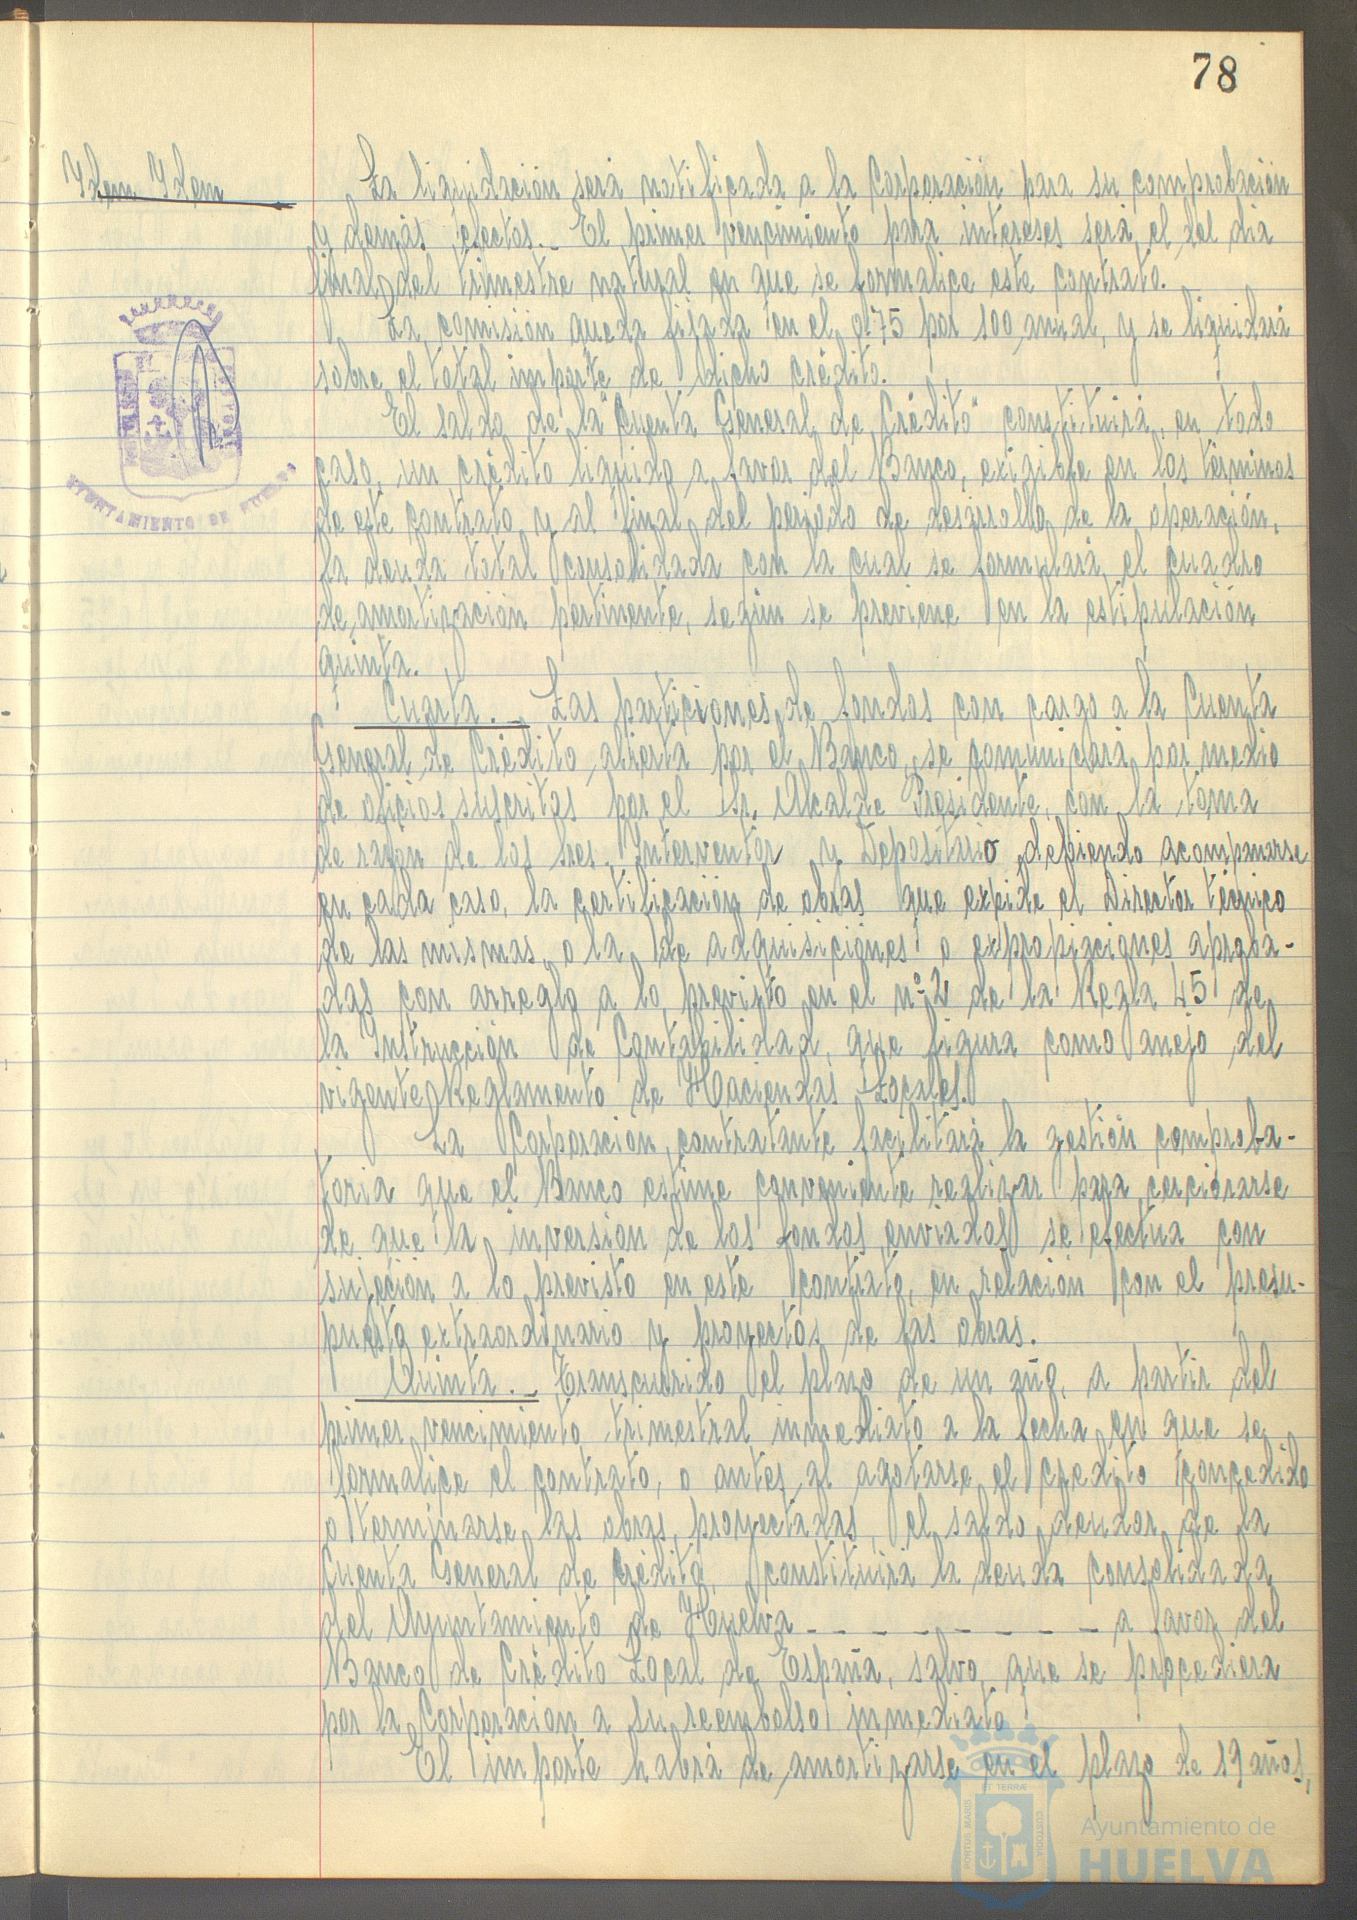 78
Idem Idem
La liquidación será notificada a la Corporación para su comprobación
y demás efectos.- El primer vencimiento para intereses será el del día
final del trimestre natural en que se formalice este contrato.
La comisión queda fijada en el 0'75 por 100 anual, y se liquidará
sobre el total importe de dicho crédito.
El saldo de la "Cuenta General de Crédito" constituirá, en todo
caso, un crédito líquido a favor del Banco, exigible en los términos
de este contrato y al final del periodo de desarrollo de la operación,
la deuda total consolidada con la cual se formulará el cuadro
de amortización pertinente, según se previene en la estipulación
quinta.
Cuarta.- Las particiones de fondos con cargo a la Cuenta
General de Crédito abierta por el Banco, se comunicará por medio
de oficios suscritas por el Sr. Alcalde Presidente, con la toma
de razón de los Sres. Interventor y Depositario debiendo acompañarse
en cada caso, la certificación de obras que expide el Director técnico
de las mismas, o la de adquisiciones o expropiaciones aproba-
das con arreglo a lo previsto en el nº 2 de la Regla 45 de
la Instrucción de Contabilidad, que figura como anejo del
vigente Reglamento de Haciendas Locales.
La Corporación contratante facilitará la gestión comproba-
toria que el Banco estime conveniente realizar para cerciorarse
de que la inversión de los fondos enviados se efectua con
sujeción a lo previsto en este contrato, en relación con el presu-
puesto extraordinario y proyectos de las obras.
Quinta.- Transcurrido el plazo de un año, a partir del
primer vencimiento trimestral inmediato a la fecha en que se
formalice el contrato, o antes al agotarse el crédito concedido
o terminarse las obras proyectadas, el saldo deudor de la
Cuenta General de Crédito, constituirá la deuda consolidada
del Ayuntamiento de Huelva - - - - - - - - - a favor del
Banco de Crédito Local de España, salvo que se procediera
por la Corporación a su reembolso inmediato
El importe habrá de amortizarse en el plazo de 19 años,
AYUNTAMIENTO DE HUELVA
PORTUS MARIS
ET TERRÆ
CUSTODIA
Ayuntamiento de
HUELVA